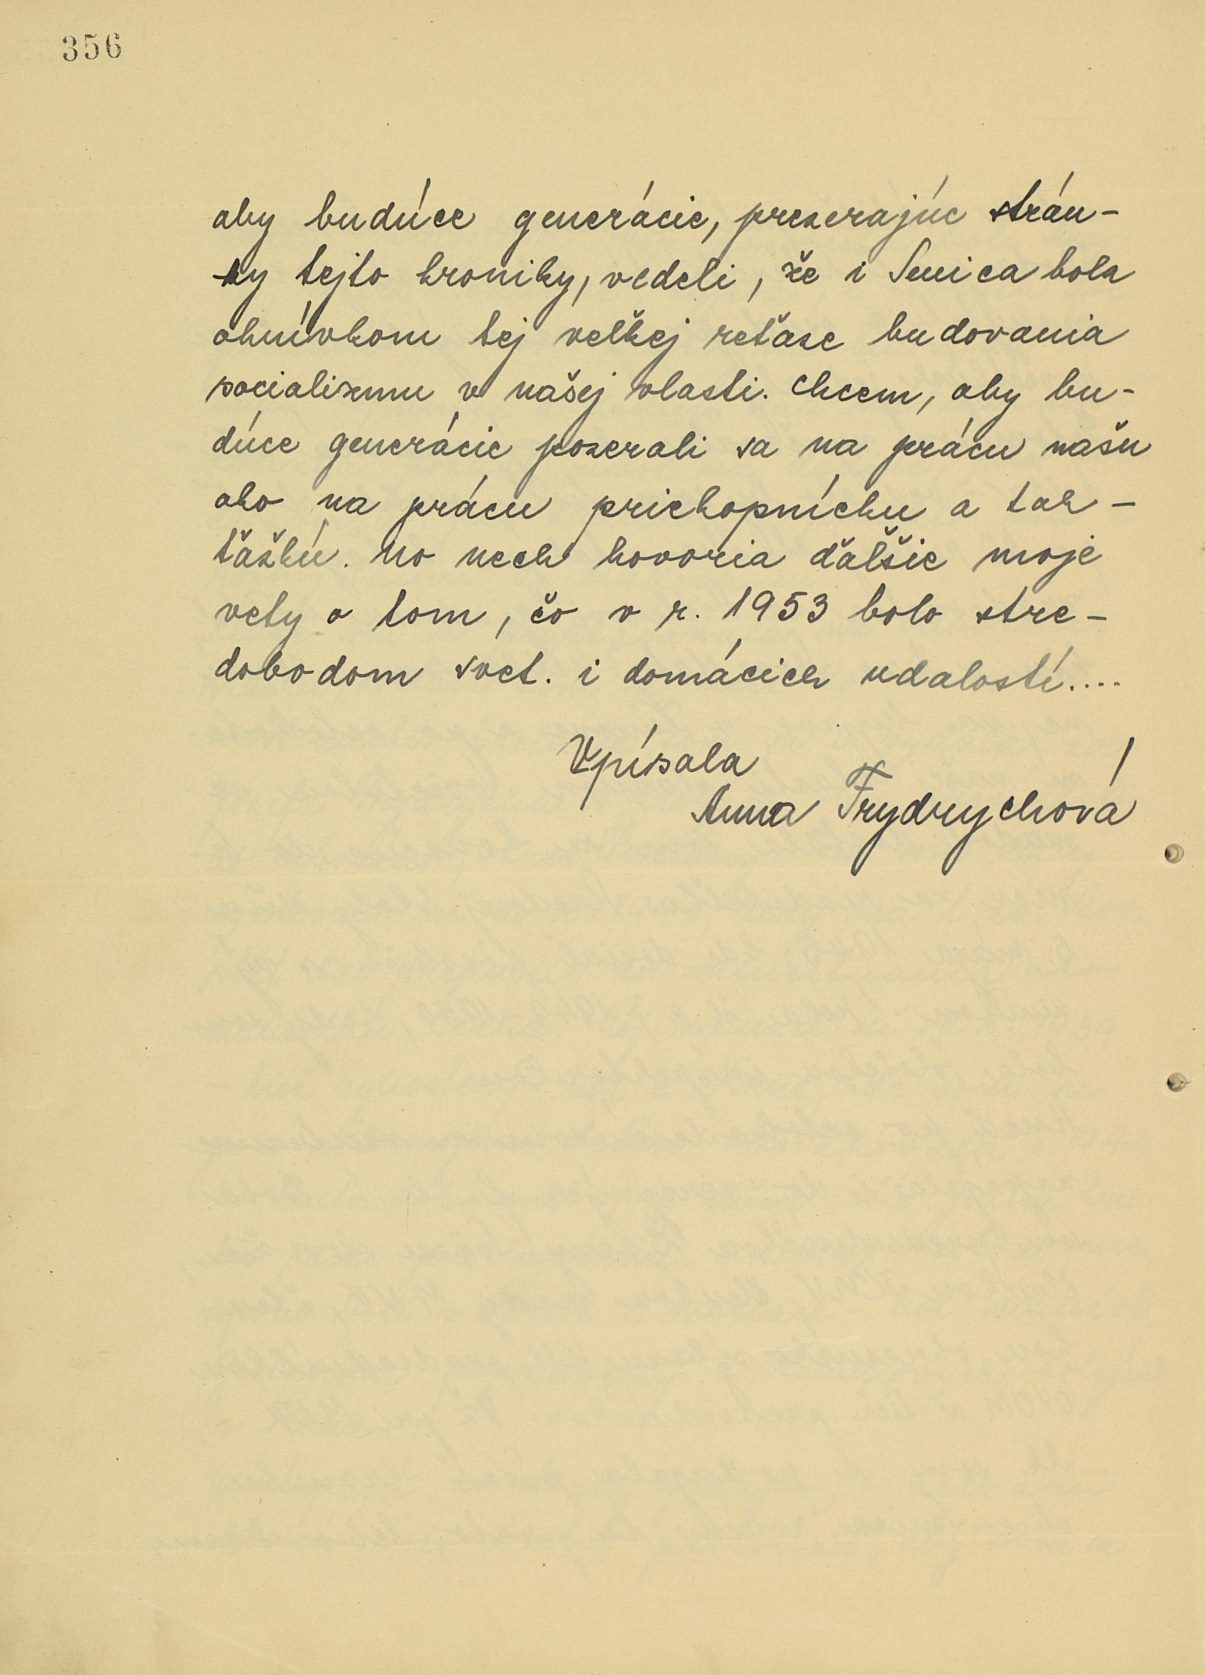 356
aby budúce generácie, prezerajúc strán-
ky tejto kroniky, vedeli, že i Senica bola
ohnívkom tej veľkej reťaze budovania
socializmu v našej vlasti. Chcem, aby bu-
dúce generácie pozerali sa na prácu našu
ako na prácu priekopnícku a tak-
ťažkú. No nech hovoria ďalšie moje
vety o tom, čo v r. 1953 bolo stre-
dobodom svet. i domácich udalostí....
Vpísala
Anna Frydrychová